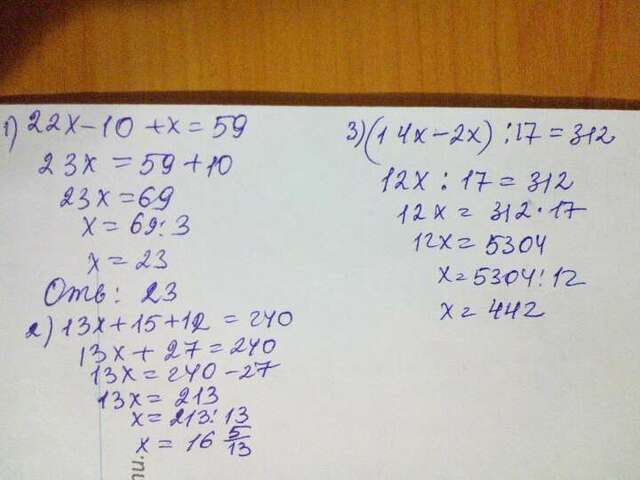 1) 22x-10+x=59
23x=59+10
23x=69
x=69:3
x=23
Отв: 23
2) 13x+15+12=240
13x+27=240
13x=240-27
13x=213
x=213:13
x=16 5/13
3) (14x-2x):17=312
12x:17=312
12x=312·17
12x=5304
x=5304:12
x=442